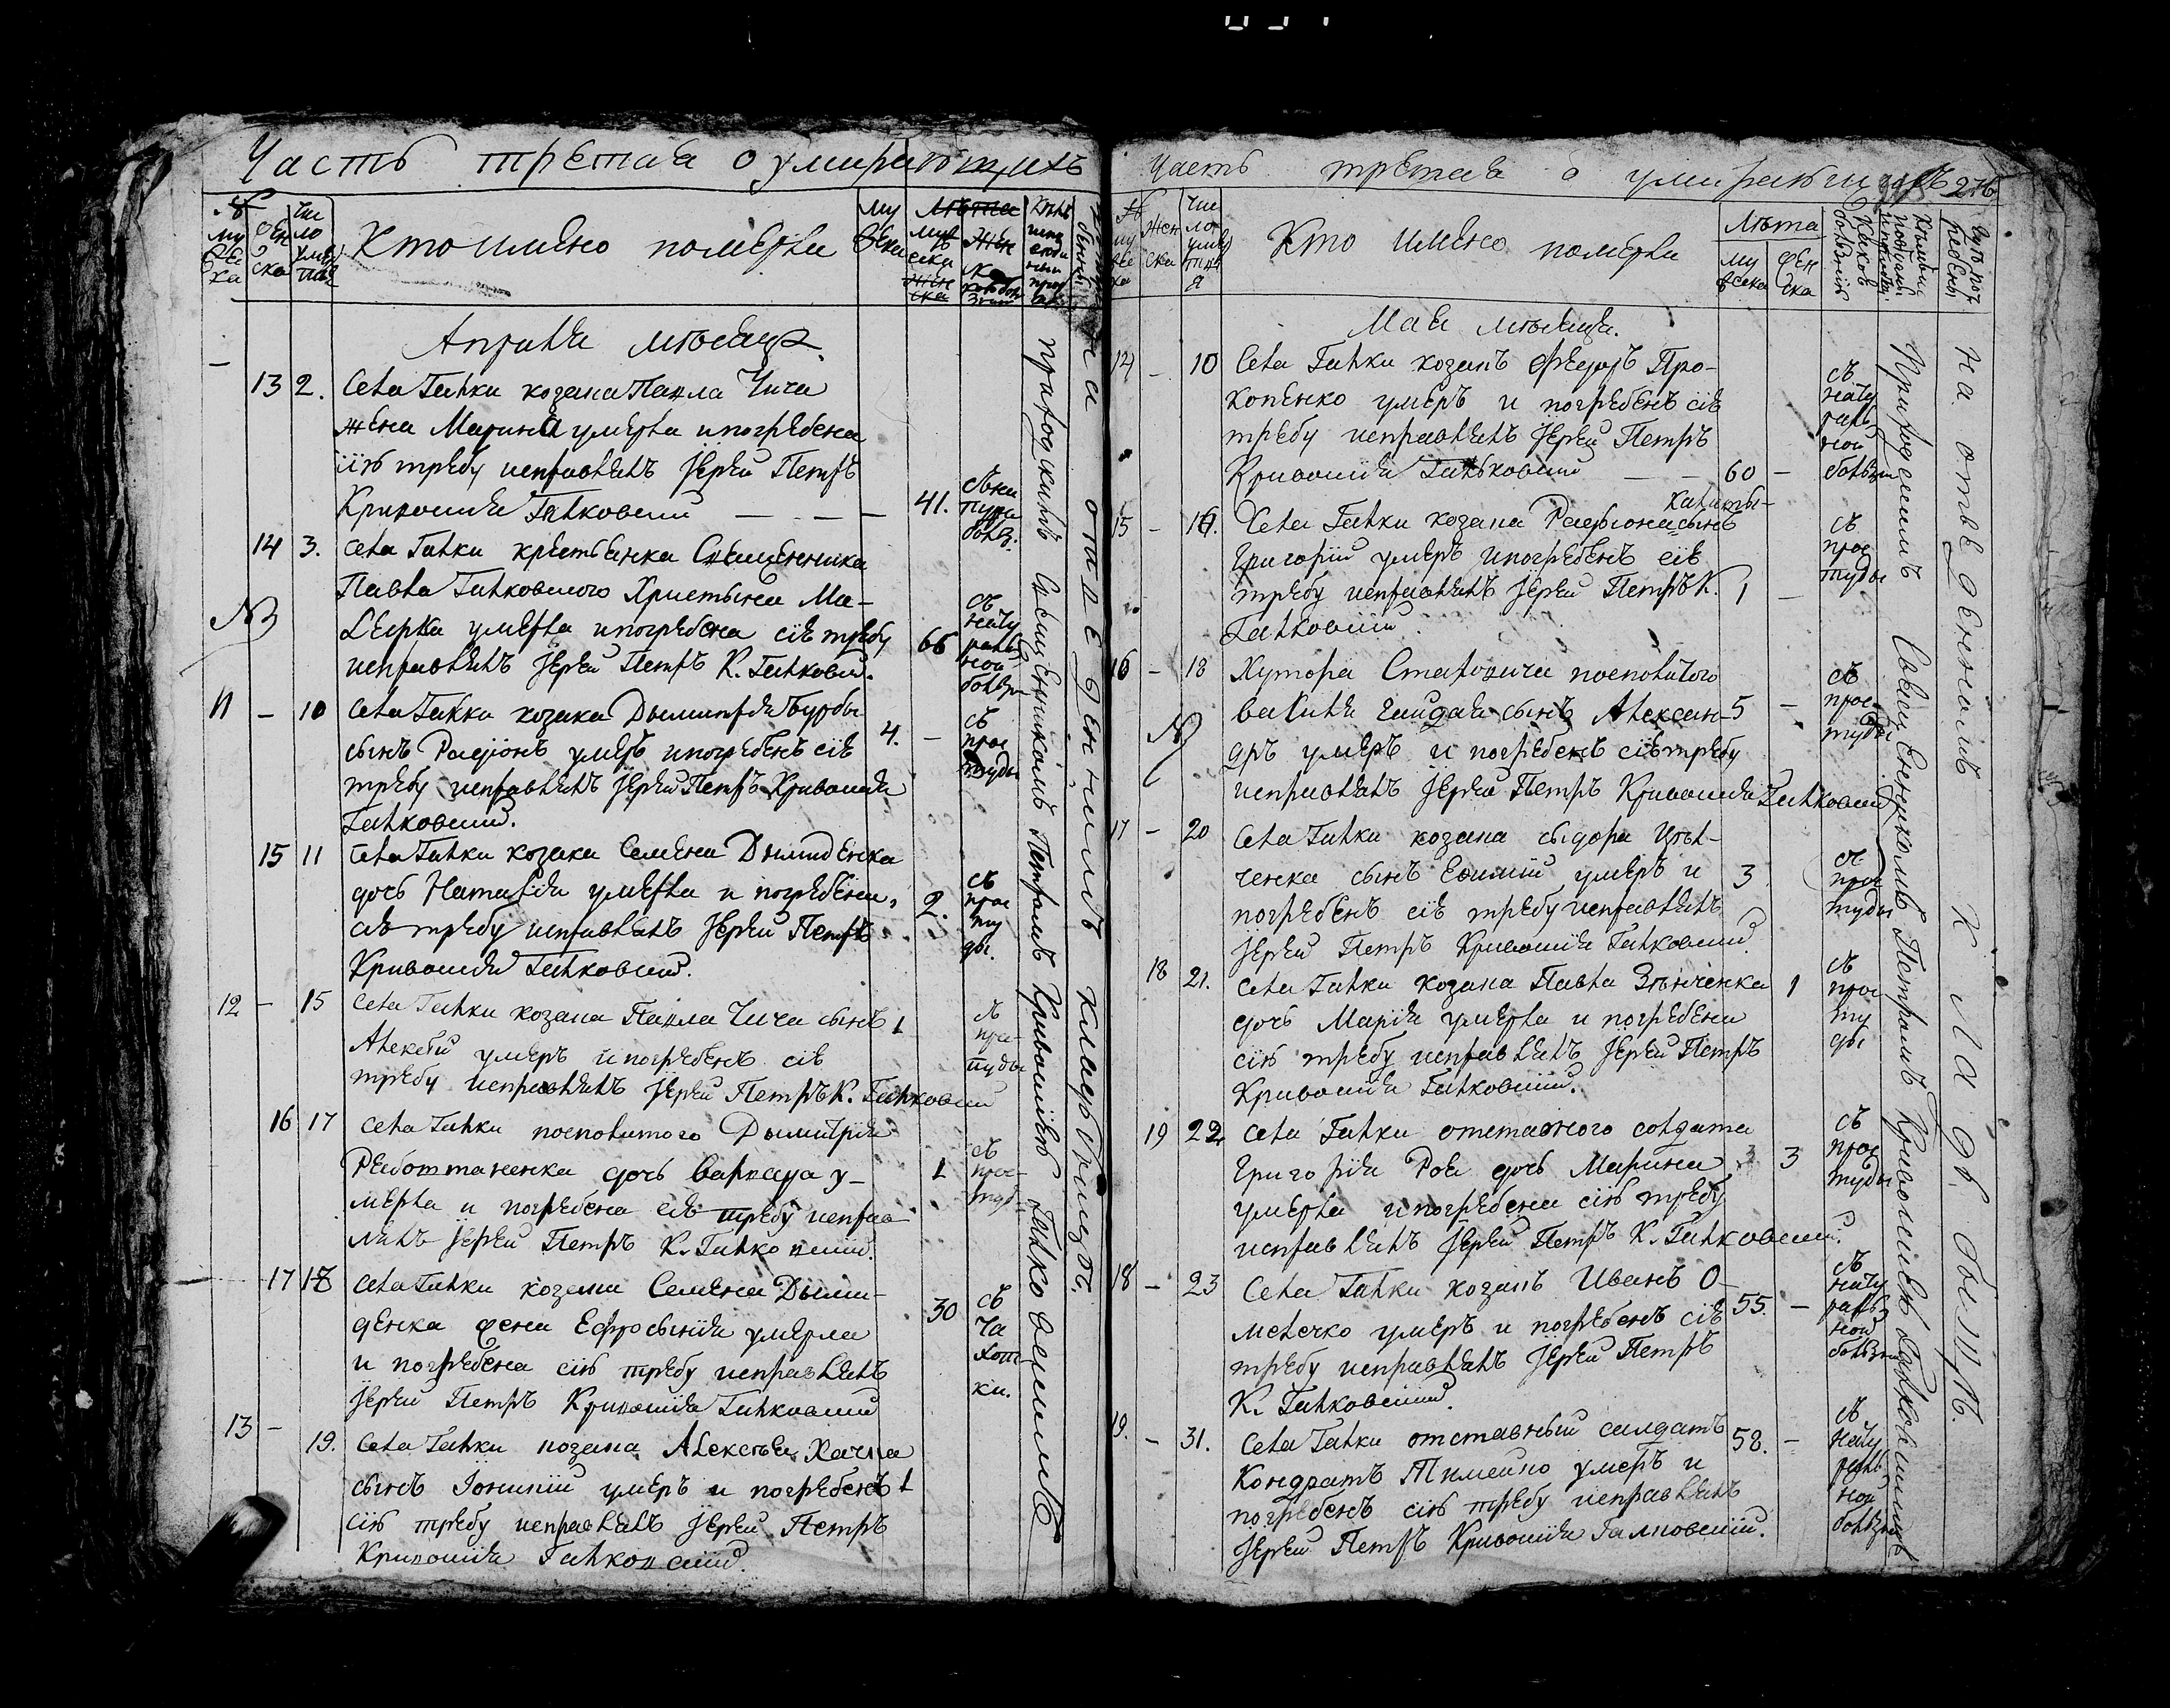 Часть третая о умирающихъ
№ му жеска
жен ска
Чи ло умер тия
Кто имено померли
му жеска
Лѣта
жен ска
Априлія мѣсяца.
13 2. Села Галки козака Павла Чича
жена Марина умерла и погребена
сію требу исправлялъ Іерей Петръ
Кривошія Галковский — — — 41.
съ на тура болѣз.
14 3. Села Галки крестьянка Священника
Павла Галковского Христына Ма-
умерла и погребена сіе требу 66
исправлялъ Іерей Петръ К. Галковский.
съ нату раль ной болѣзни
11 — 10 Села Галки козака Дымитрія Бурбы
сынъ умеръ и погребенъ сіе 4. —
требу исправлялъ Іерей Петръ Кривошія
Галковский.
съ прос туды
15 11 Села Галки козака Семена Дымиденка
дочь Наталія умерла и погребена, 2.
сіе требу исправлялъ Іерей Петръ
Кривошія Галковский.
съ прос ту ды.
12 — 15 Села Галки козака Павла Чича сынъ 1
Алексѣй умеръ и погребенъ сіе
требу исправлялъ Іерей Петръ К. Галковский
съ прос туды
16 17 Села Галки посполитого Дымитрія
дочь Варвара у- 1
мерла и погребена сіе требу исправ
лялъ Іерей Петръ К. Галковский.
съ прос туд
17 18 Села Галки козака Семена Дыми-
денка жена Ефросынія умерла 30
и погребена сію требу исправлялъ
Іерей Петръ Кривошія Галковский
съ ча хот ки.
13 — 19. Села Галки козака Алексѣя
сынъ умеръ и погребенъ 1
сію требу исправлялъ Іерей Петръ
Кривошія Галковский.
приход скимъ Священникомъ Петромъ Кривошіею Галковскимъ
на отведенномъ кладбищѣ.
Часть третая о умирающихъ 276
му жеска
жен ска
Чис ло умер тия
Кто имено померли
Лѣта
му жеска
жен ска
Мая мѣсяца.
14 — 10 Села Галки козакъ Федоръ Про-
копенко умеръ и погребенъ сіе
требу исправлялъ Іерей Петръ
Кривошія Галковский — — 60 —
съ нату раль ной болѣзни
15 — 16. Села Галки козака сынъ
Григорій умеръ и погребенъ сіе
требу исправлялъ Іерей Петръ К. 1 —
Галковский.
съ прос туды
16 — 18 Хутора посполитого
сынъ Алексан- 5 —
дръ умеръ и погребенъ сіе требу
исправлялъ Іерей Петръ Кривошія Галковский
съ прос туды
17 — 20 Села Галки козака Сыдора
ченка сынъ Ефимій умеръ и 3
погребенъ сіе требу исправлялъ
Іерей Петръ Кривошія Галковский
съ прос туды
18 21. Села Галки козака Павла Зѣнченка 1
дочь Марія умерла и погребена
сію требу исправлялъ Іерей Петръ
Кривошія Галковский.
съ прос ту ды
19 22 Села Галки отставного солдата
Григорія Роя дочь Марина 3
умерла и погребена сію требу
исправлялъ Іерей Петръ К. Галковский.
съ прос туды
18 — 23 Села Галки козакъ Иванъ О-
мелечко умеръ и погребенъ сіе 55. —
требу исправлялъ Іерей Петръ
К. Галковский.
съ нату раль ной болѣзни
19. — 31. Села Галки отставный салдатъ 58. —
Кондратъ умеръ и
погребенъ сію требу исправлялъ
Іерей Петръ Кривошія Галковский.
съ нату раль ной болѣзни
Приходскимъ Священникомъ Петромъ Кривошіею Галковскимъ
на отведенномъ кладбищѣ.